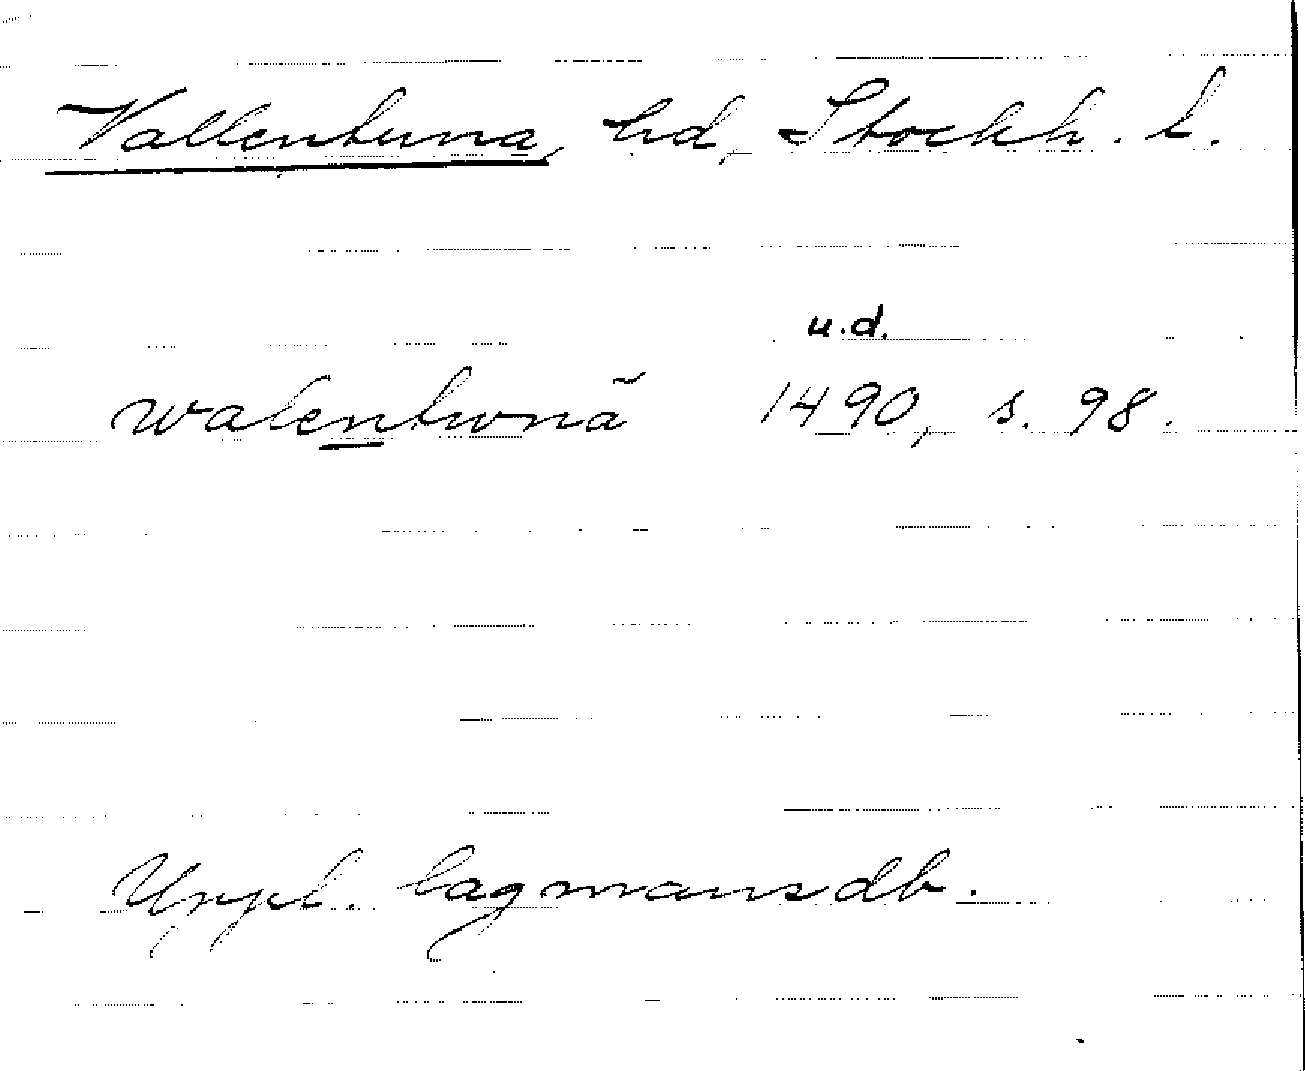 Vallentuna, hd, Stockh. l.
u.d.
walentwnã 1490, s. 98.
Uppl. lagmansdb.